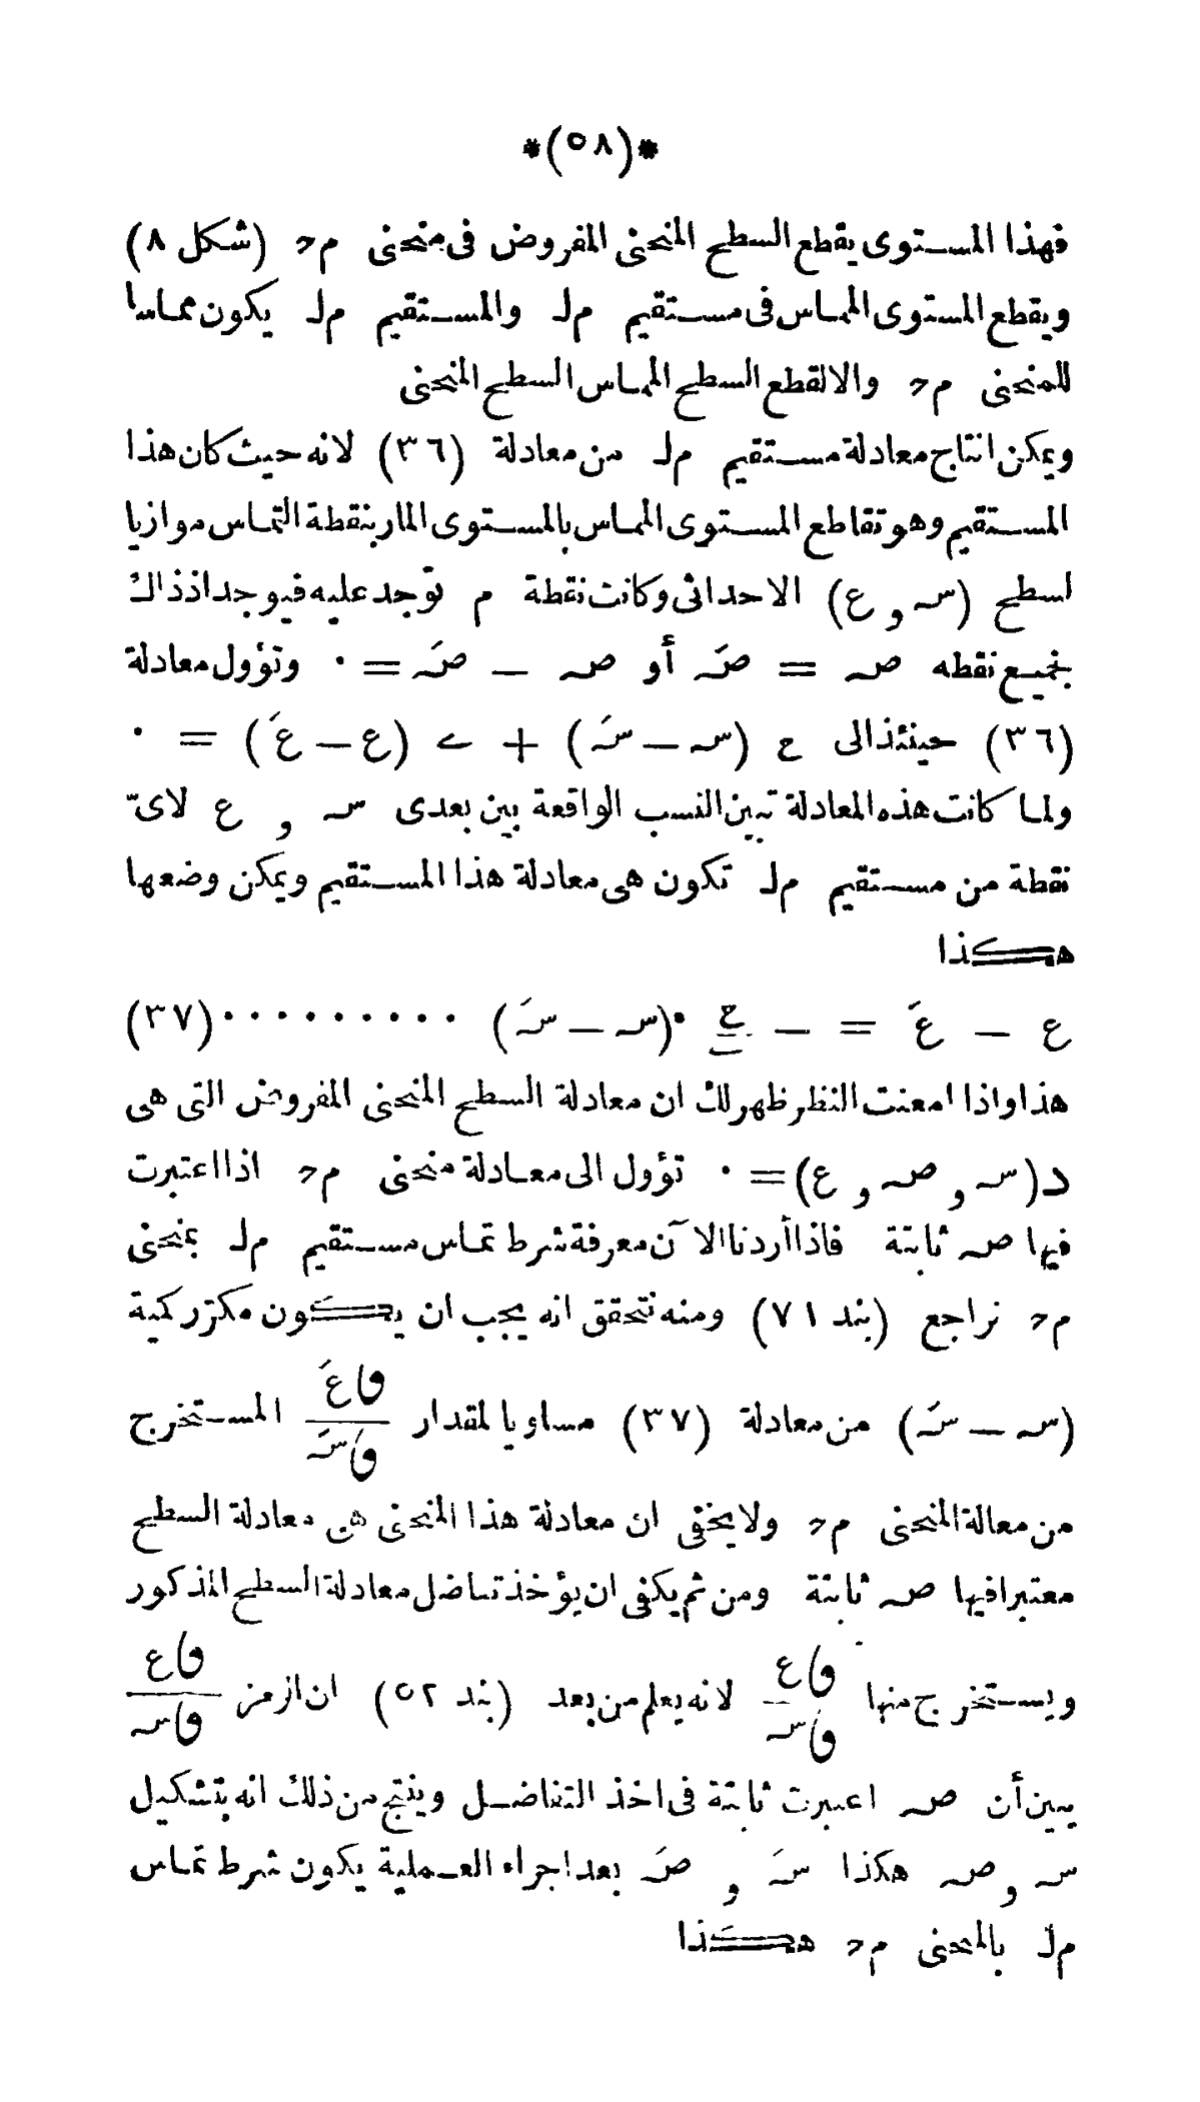 *(٥٨)*
فهذا المستوى يقطع السطح المنحنى المفروض فى منحنى م حـ (شكل ٨)
ويقطع المستوى المماس فى مستقيم م لـ والمستقيم م لـ يكون مماسا
للمنحنى م حـ والالقطع السطح المماس السطح المنحنى
ويمكن انتاج معادلة مستقيم م لـ من معادلة (٣٦) لانه حيث كان هذا
المستقيم وهو تقاطع المستوى المماس بالمستوى المار بنقطة التماس موازيا
لسطح (سـ و ع) الاحداثى وكانت نقطة م توجد عليه فيوجد اذ ذاك
بجميع نقطه صـ = صَـ أو صـ – صَـ = ٠ وتؤول معادلة
(٣٦) حينئذ الى ح (سـ – سَـ) + ى (ع – عَ) = ٠
ولما كانت هذه المعادلة تبين النسب الواقعة بين بعدى سـ و ع لاىّ
نقطة من مستقيم م لـ تكون هى معادلة هذا المستقيم ويمكن وضعها
هكذا
ع – عَ = – ح/ى ٠(سـ – سَـ) ٠٠٠٠٠٠٠٠٠ (٣٧)
هذا واذا امعنت النظر ظهر لك ان معادلة السطح المنحنى المفروض التى هى
د(سـ و صـ و ع) = ٠ تؤول الى معادلة منحنى م حـ اذا اعتبرت
فيها صـ ثابتة فاذا أردنا الآن معرفة شرط تماس مستقيم م لـ بمنحنى
م حـ نراجع (بند ٧١) ومنه نتحقق انه يجب ان يكون مكرّر كمية
(سـ – سَـ) من معادلة (٣٧) مساويا لمقدار ڡاعَ/ڡاسَـ المستخرج
من معالة المنحنى م حـ ولايخفى ان معادلة هذا المنحنى هى معادلة السطح
معتبرا فيها صـ ثابتة ومن ثم يكفى ان يؤخذ تفاضل معادلة السطح المذكور
ويستخرج منها ڡاع/ڡاسـ لانه يعلم من بعد (بند ٥٢) ان الرمز ڡاع/ڡاسـ
يبين أن صـ اعتبرت ثابتة فى اخذ التفاضل وينتج من ذلك انه بتشكيل
سـ و صـ هكذا سَـ و صَـ بعد اجراء العملية يكون شرط تماس
م لـ بالمنحنى م حـ هكذا